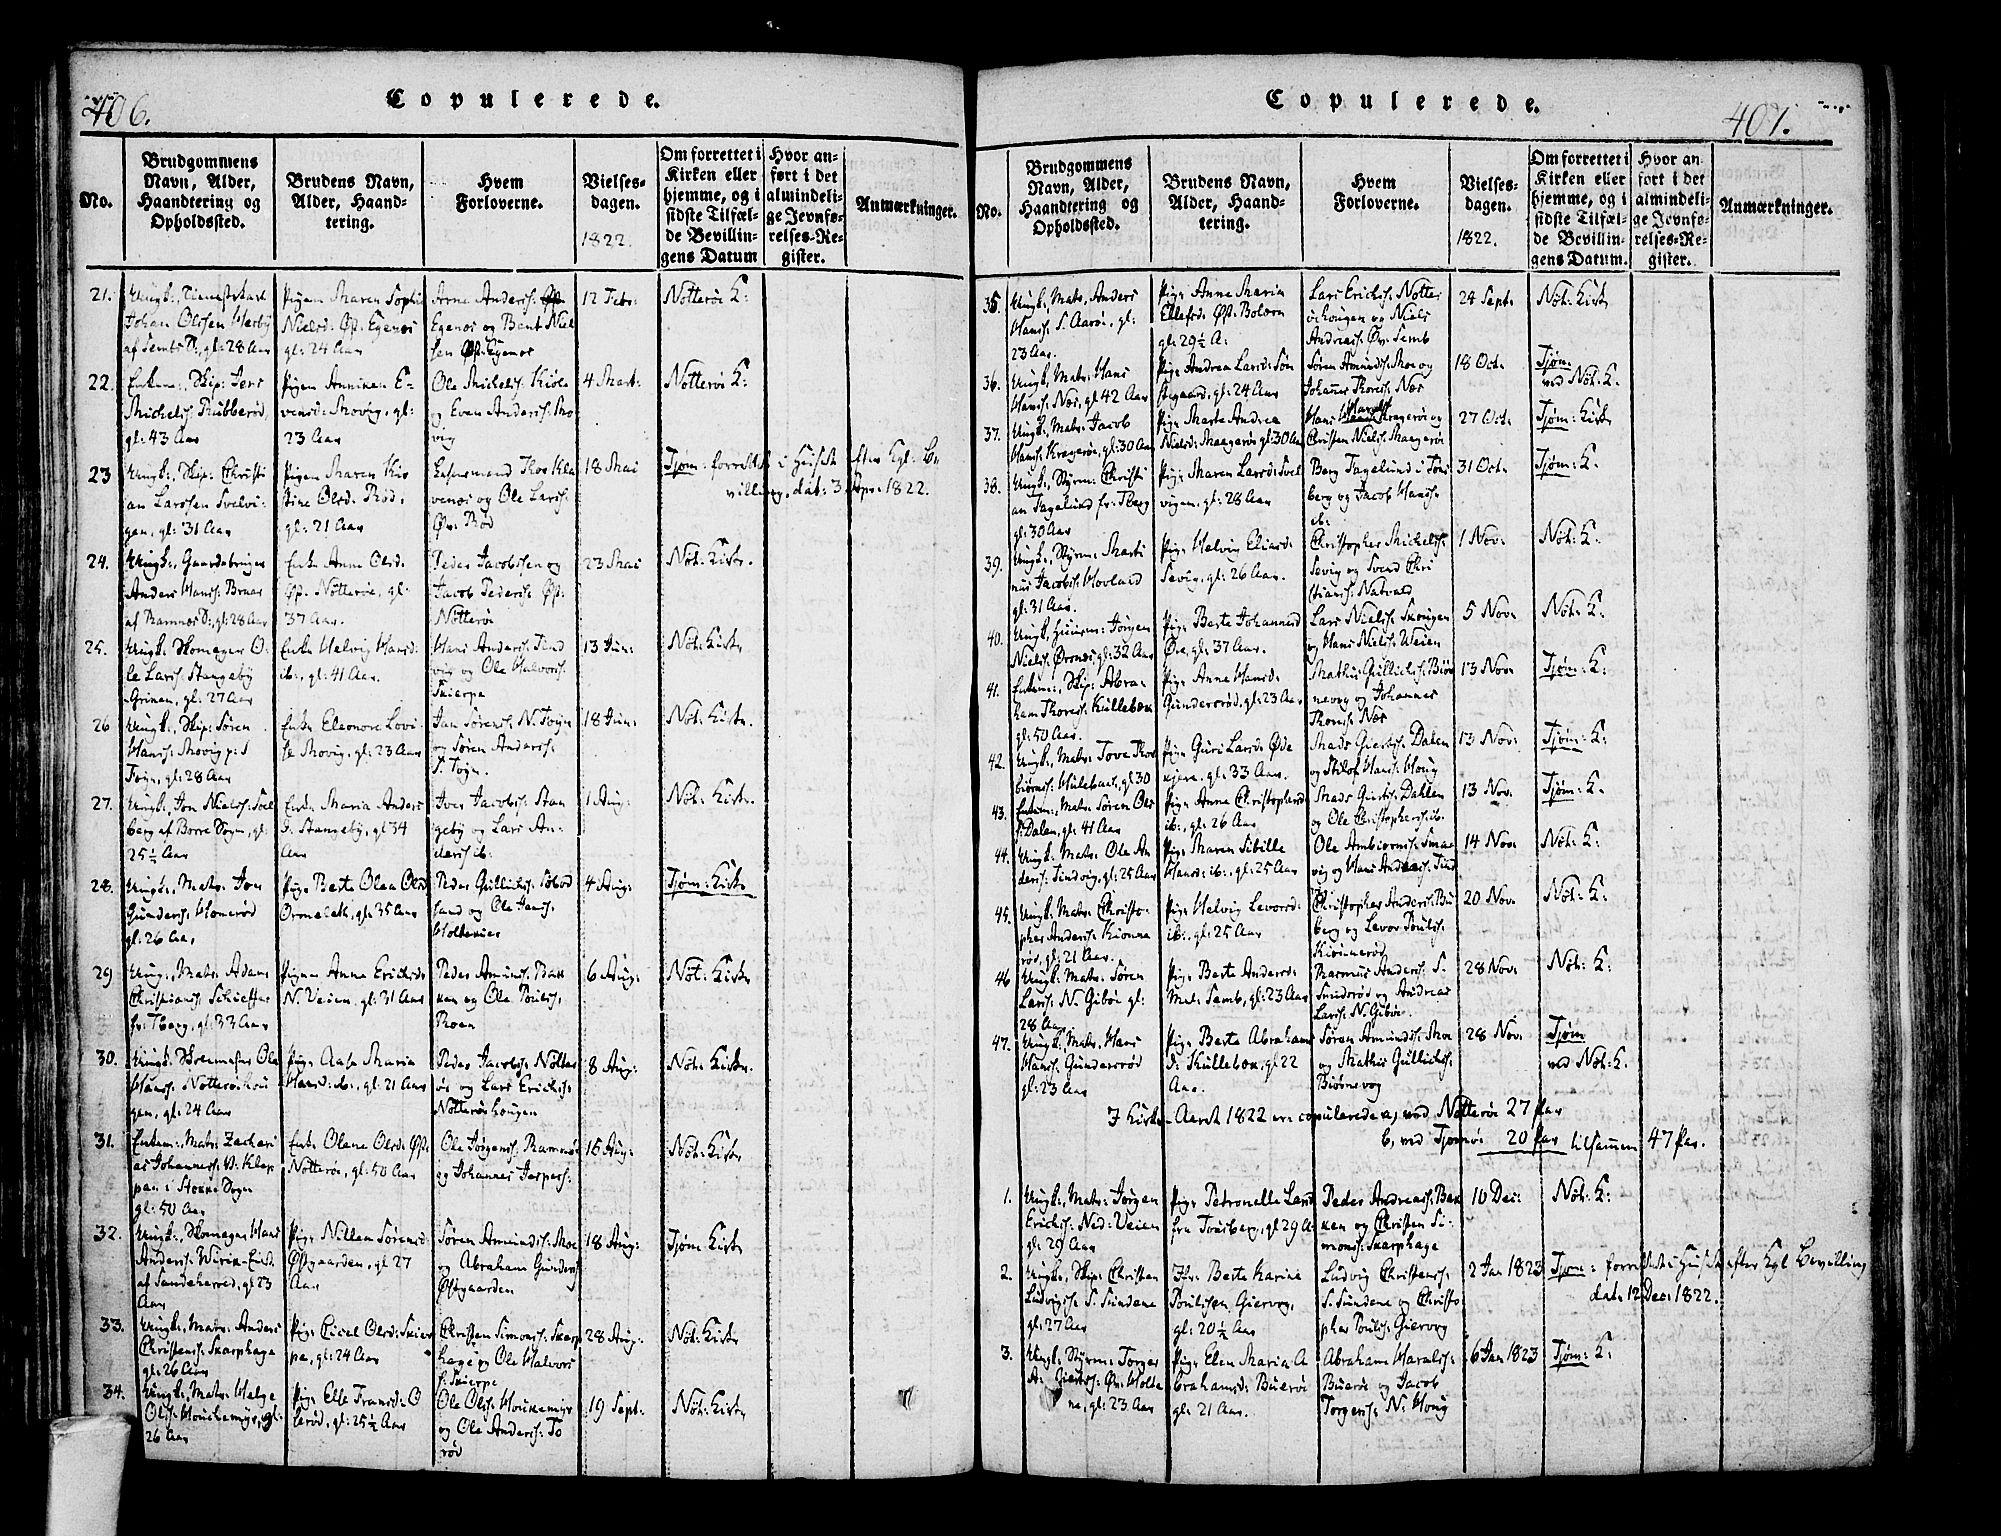 406.
Copulerede.
No.
Brudgommens Navn, Alder, Haandtering og Opholdssted.
Brudens Navn, Alder, Haandtering.
Hvem Forloverne.
Vielsesdagen.
1822.
Om forrettet i Kirken eller hjemme, og i sidste Tilfælde Bevillingens Datum
Hvor anført i det almindelige Jevnførelses-Register.
Anmærkninger.
21. Ungk:, Tienestekarl Johan Olssen Herby af Sembs P:, gl: 28 Aar
Pigen Maren Sophi Nielsd: Øst. Egenes gl: 24 Aar
Arne Anders: Øst Egenes og Bent Nielsen Øst. Egenes
12 Febr:
Nøtterøe K:
22. Enkem:, Skip: Jens Michels: Rubberød, gl: 43 Aar
Pigen Anniken Evensd: Hovig, gl: 23 Aar
Ole Michels: Kiøle og Even Anders: Hovig
4 Mart:
Nøtterøe K:
23 Ungk:, Skip: Christian Larssen Svelvigen, gl: 31 Aar
Pigen Maren Kirstine Olsd: Rød, gl: 21 Aar
og Ole Lars: Øv: Rød
18 Mai
Tjøm: forrettet i Huset efter Kgl: Bevilling, dat: 3 Apr: 1822.
24. Ungk:, Gaardebruger Anders Hans: Bruar af Ramnes P:, gl: 28 Aar
Enke Anne Olsd: Øst. Nøtterøe, gl: 37 Aar.
Peder Jacobssen og Jacob Peders: Øst. Nøtterøe
23 Mai
Nøt: Kirke.
25. Ungk: Skomager Ole Lars: Stangeby Grinen, gl: 27 Aar
Enke Helvig Hansd: ib:, gl: 41 Aar.
Hans Anders: Tindvig og Ole Halvors: Skierpe
13 Jun:
Nøt: Kirke
26 Ungk:, Skip: Søren Hans: Hovig p: t Føyn, gl: 28 Aar
Enke Eleonore Lovise Hovig, gl: 23 Aar
Jan Sørens: N. Føyn og Søren Anders: S. Føyn.
18 Jun:
Nøt: Kirke.
27. Ungk:, Jon Niels: Solberg af Borre Sogn, gl: 25½ Aar
Enke Maria Andersd. Stangeby, gl 34 Aar
Iver Jacobs: Stangeby og Lars Anders: ib:
1 Aug:
Nøt: Kirke.
28. Ungk:, Matr: Jon Gunders: Honerød gl: 26 Aar
Pig: Berte Olea Olsd Ormelett, gl: 35 Aar
Peder Gullichs: og Ole Jans: Holtenes
4 Aug:
Tjøm: Kirke
29 Ung:, Matr: Adam Christians: fr: Tberg, gl: 33 Aar
Pigen Anne Ericksd: N. Veien, gl: 31 Aar
Peder Amunds: Bakken og Ole Pouls: Roen
6 Aug:
Nøt: Kirke
30. Ungk: Skolemester Ole Hans: Nøtterøehougen, gl: 24 Aar
Pig: Aase Maria Hansd: ib:, gl: 21 Aar
Peder Jacobs: Nøtterøe og Lars Ericks: Nøtterøehougen
8 Aug:
Nøt: Kirke.
31. Enkem:, Matr: Zacharias Johannes: V: Kleppan i Stokke Sogn gl: 50 Aar
Enke Olene Olsd: Øst: Nøtterøe, gl: 50 Aar
Ole Jørgens: Ramnes og Johannes Jespers:
15 Aug:
Nøt: Kirke
32. Ungk:, Skomager Hans Anders: af Sandeherred, gl 23 Aar
Pig: Nillem Sørensd: Østgaarden, gl 27 Aar
Søren Amunds: Moe og Abraham Gunders: Østgaarden
18 Aug:
Tjøm: Kirke
33. Ungk:, Matr: Anders Christens: Skarphage gl: 26 Aar
Pig: Olsd: Skierpe, gl: 24 Aar
Christen Simons: Skarphage og Ole Halvors: Skierpe
28 Aug:
Nøt: Kirke
34. Ungk:, Matr: Helge Ols: Houkemyr, gl: 26 Aar
Pig: Elle Fransd: Olerød, gl: 25½ Aar
Ole Ols: Houkemyr og Ole Anders: Torød
19 Sept:
Nøt: Kirke
407.
Copulerede.
No.
Brudgommens Navn, Alder, Haandtering og Opholdssted.
Brudens Navn, Alder, Haandtering.
Hvem Forloverne.
Vielsesdagen.
1822.
Om forrettet i Kirken eller hjemme, og i sidste Tilfælde Bevillingens Datum.
Hvor anført i det almindelige Jevnførelses-Register.
Anmærkninger.
35. Ungk:, Matr: Anders Hans: S. Aarøe, gl: 23 Aar.
Pig: Anne Maria Ellefsd: Øst: Bolærn gl: 29½ A:
Lars Ericks: Nøtterøehougen og Niels Andreas: Øv: Semb
24 Sept:
Nøt: Kirke
36. Ungk:, Matr: Hans Hans: Næs, gl 42 Aar
Pig: Andrea Larsd: Søn Østgaard, gl: 24 Aar
Søren Amunds: Moe og Johannes Thores: Næs
18 Oct:
Tjøm: ved Nøt: K.
37. Ungk: Matr: Jacob Hans: Kragerøe, gl: 30 Aar
Pig: Marte Andrea Nielsd: Mangerøe gl: 30 Aar
Hans Haralds: Kragerøe og Christen Niels: Mangerøe
27 Oct:
Tjøm: Kirke
38. Ungk:, Styrm: Christian Fagelund fr: Tberg gl: 30 Aar
Pig: Maren Larsd: Svelvigen, gl: 28 Aar
Berg Fagelund i Tønsberg og Jacob Hans: ib:
31 Oct:
Tjøm: K.
39. Ungk:, Styrm: Martinus Jacobs: Hovland gl: 31 Aar.
Pig: Helvig Eliasd: Sevig, gl: 26 Aar.
Christopher Michels: Sevig og Svend Christians: Natvald
1 Nov:
Nøt: K.
40. Ungk, Huusm: Jørgen Niels: Ørsnes, gl: 32 Aar
Pig: Berte Johannesd Øre, gl: 37 Aar.
Lars Niels: Skougen og Hans Niels: Weien
5 Nov:
Nøt: K:
41. Enkem:, Skip: Abraham Thores: Kullebøk gl: 50 Aar.
Pig: Anne Hansd: Gundersrød, gl: 23 Aar
Mathis Gullichs: Biørnevog og Johannes Thores: Næs
13 Nov:
Tjøm: K:
42. Ungk:, Matr: Tove Thorbiørns: Hulebak, gl 30
Pig: Guri Larsd: Ødekjere, gl: 33 Aar.
Mads Gierts: Dalen og Hans: Houg
13 Nov:
Tjøm: K:
43. Enkem:, Matr: Søren Ols: Dalen, gl: 41 Aar
Pig: Anne Christophersd ib:, gl: 26 Aar
Mads Gierts: Dahlen og Ole Christophers: ib:
13 Nov:
Tjøm: K.
44. Ungk:, Matr: Ole Anders: Tindvig, gl: 25 Aar
Pig: Maren Sibille Hansd: ib:, gl: 25 Aar
Ole Ambiørns: Smaevig og Hans Andreas: Tind
14 Nov:
Nøt: K:
45. Ungk:, Matr: Christopher Anders: Kiønnerød, gl: 21 Aar.
Pig: Helvig Levorsd: ib:, gl: 25 Aar
Christopher Anders: Buberg og Levor Pouls: Kiønnerød
20 Nov:
Nøt: K:
46 Ungk: Matr: Søren Lars: N. Gibøe gl: 28 Aar
Pig: Berte Andersd: Mel: Semb, gl: 23 Aar
Rasmus Anders: S. Smidsrød og Andreas Lars: N. Gibøe.
28 Nov:
Nøt: K:
47. Ungk: Matr:, Hans Hans: Gundersrød gl: 23 Aar
Pig: Berte Abrahamsd: Kullebøk, gl 22 Aar.
Søren Amunds: Moe og Mathis Gullichs: Biørnevog
28 Nov:
Tjøm ved Nøt: K.
I Kirke-Aaret 1822 ere copulerede a, ved Nøtterøe 27 Par
b, ved Tjømøe 20 Par tilsammen 47 Par.
1. Ungk:, Matr: Jørgen Ericks: Ned: Veien gl: 29 Aar
Pig: Petronelle Larsd fra Tønsberg, gl 29 A:
Peder Andreas: Bakken og Christen Simons: Skarphage
10 Dec:
Nøt: K:
2. Ungk:, Skip: Christen Ludvigs: S: Sundene gl: 27 Aar
Jfr: Berte Karine Poulsen Giervog, gl: 20½ Aar
Ludvig Christens: S: Sundene og Christopher Pouls: Giervog
2 Jan 1823
Tjøm: forrettet i Huset efter Kgl Bevilling dat: 12 Dec: 1822.
3. Ungk: Styrm: Torger A. Gierts: Øv: Holtene, gl: 23 Aar
Pig: Elen Maria Abrahamsd: Buerøe gl: 21 Aar.
Abraham Haralds: Buerøe og Jacob Torgers: N. Houg
6 Jan 1823
Tjøm: K: